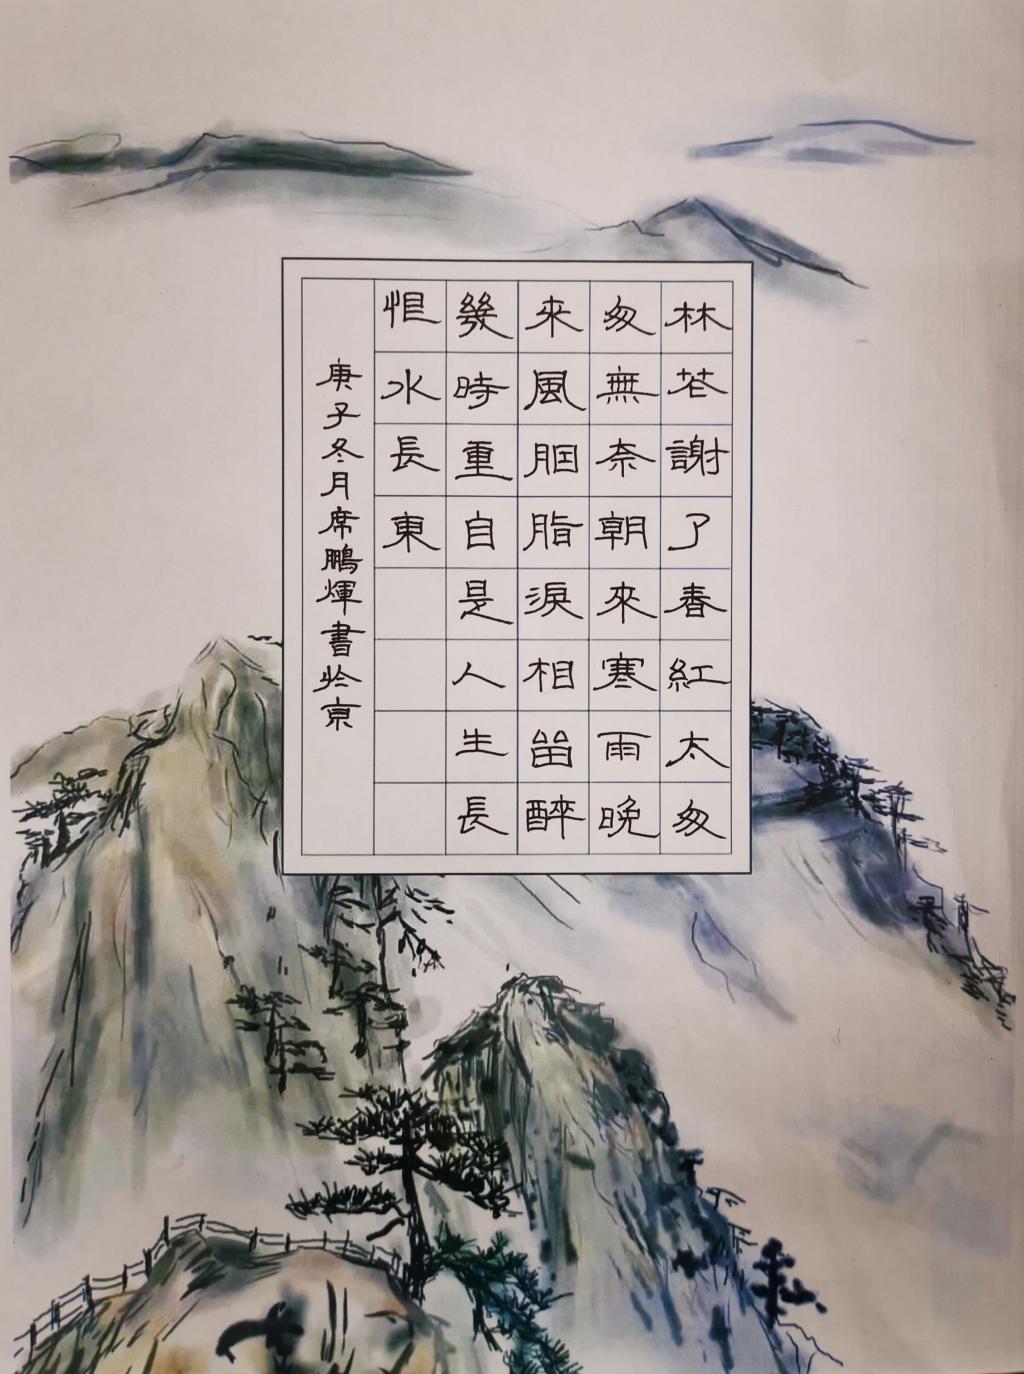 林花謝了春紅太匆
匆無奈朝來寒雨晚
來風胭脂淚相留醉
幾時重自是人生長
恨水長東
庚子冬月席鵬輝書於京